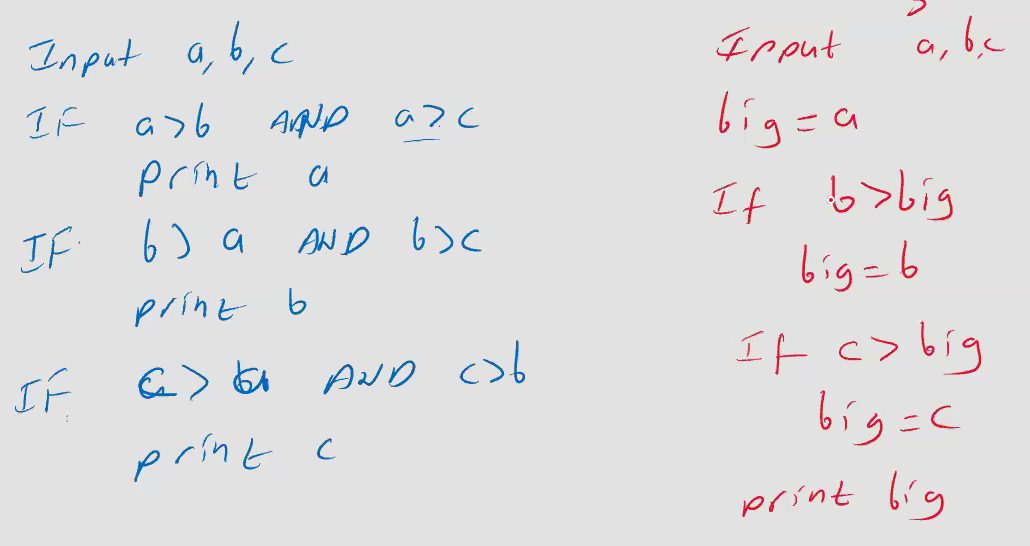 Input a, b, c
IF a>b AND a>c
print a
IF b> a AND b>c
print b
IF AND c>b
print c
Input a, b, c
big = a
If b>big
big = b
If c > big
big = c
print big